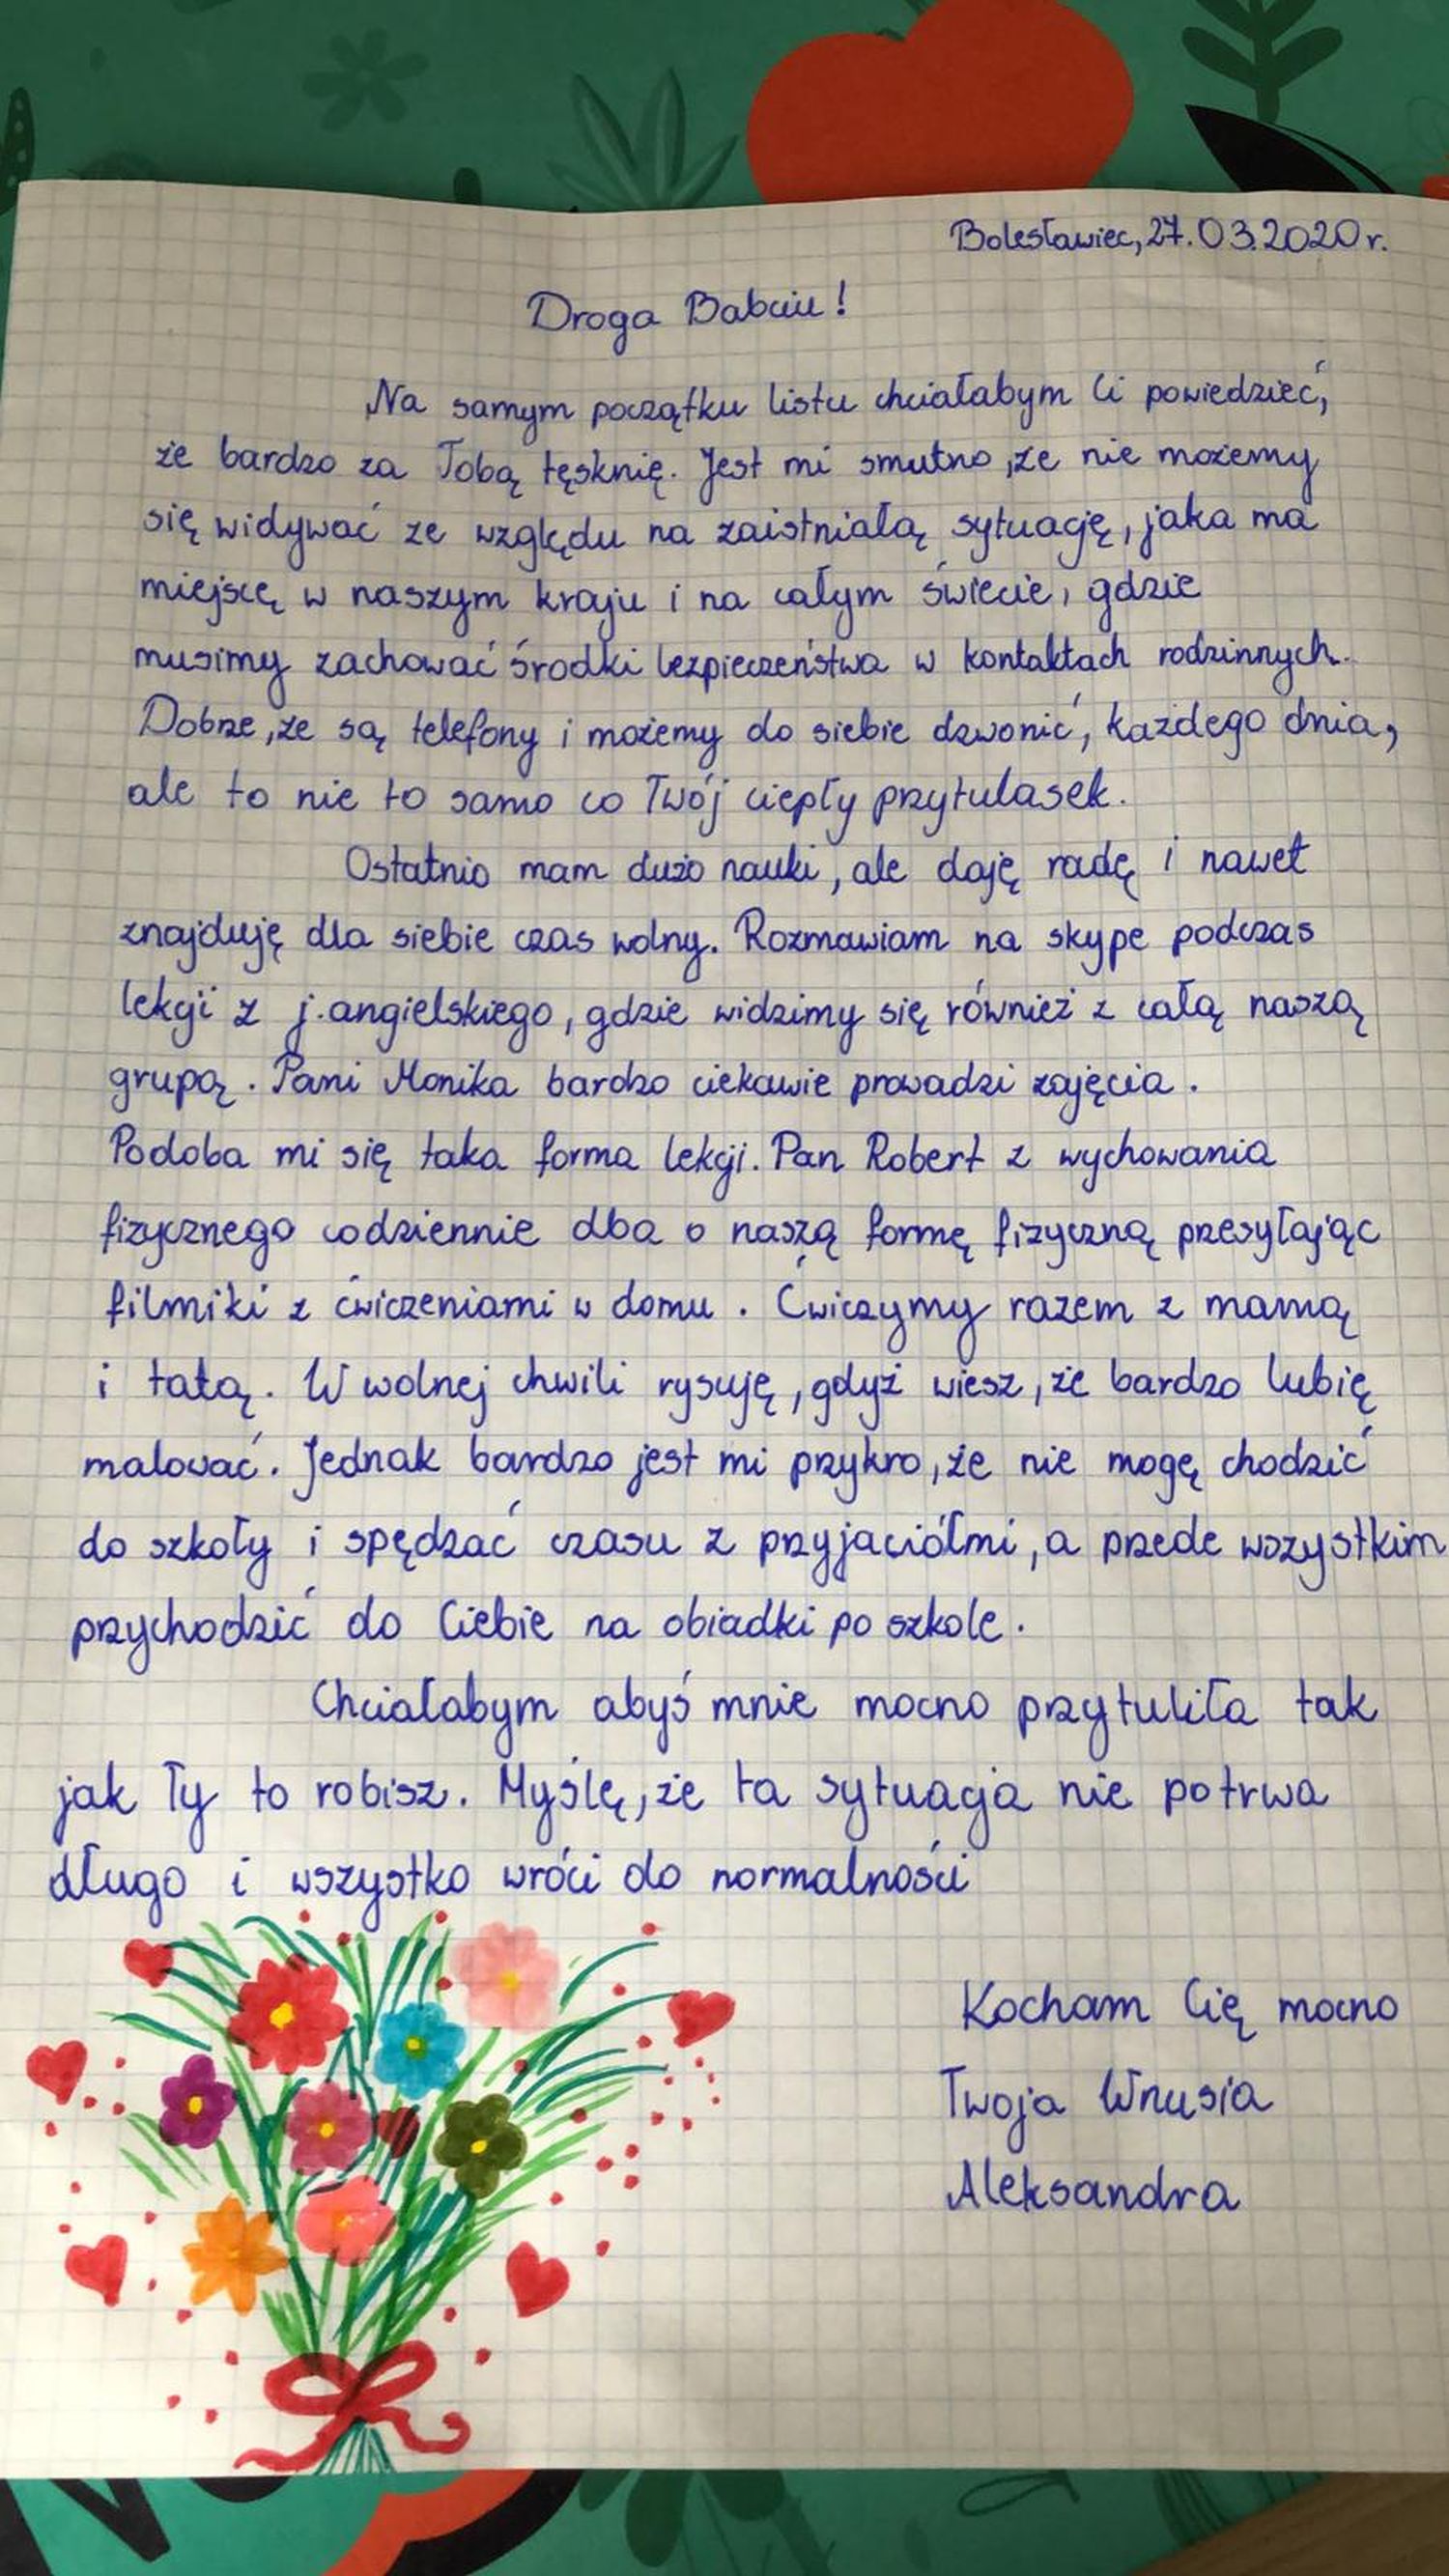 Bolesławiec, 27.03.2020 r.
Droga Babciu!
Na samym początku listu chciałabym Ci powiedzieć,
że bardzo za Tobą tęsknię. Jest mi smutno, że nie możemy
się widywać ze względu na zaistniałą sytuację, jaka ma
miejscę w naszym kraju i na całym świecie, gdzie
musimy zachować środki bezpieczeństwa w kontaktach rodzinnych.
Dobrze, że są telefony i możemy do siebie dzwonić, każdego dnia,
ale to nie to samo co Twój ciepły przytulasek.
Ostatnio mam dużo nauki, ale daję radę i nawet
znajduję dla siebie czas wolny. Rozmawiam na skype podczas
lekcji z j. angielskiego, gdzie widzimy się również z całą naszą
grupą. Pani Monika bardzo ciekawie prowadzi zajęcia.
Podoba mi się taka forma lekcji. Pan Robert z wychowania
fizycznego codziennie dba o naszą formę fizyczną przesyłając
filmiki z ćwiczeniami w domu. Ćwiczymy razem z mamą
i tatą. W wolnej chwili rysuję, gdyż wiesz, że bardzo lubię
malować. Jednak bardzo jest mi przykro, że nie mogę chodzić
do szkoły i spędzać czasu z przyjaciółmi, a przede wszystkim
przychodzić do Ciebie na obiadki po szkole.
Chciałabym abyś mnie mocno przytuliła tak
jak Ty to robisz. Myślę, że ta sytuacja nie potrwa
długo i wszystko wróci do normalności
Kocham Cię mocno
Twoja Wnusia
Aleksandra